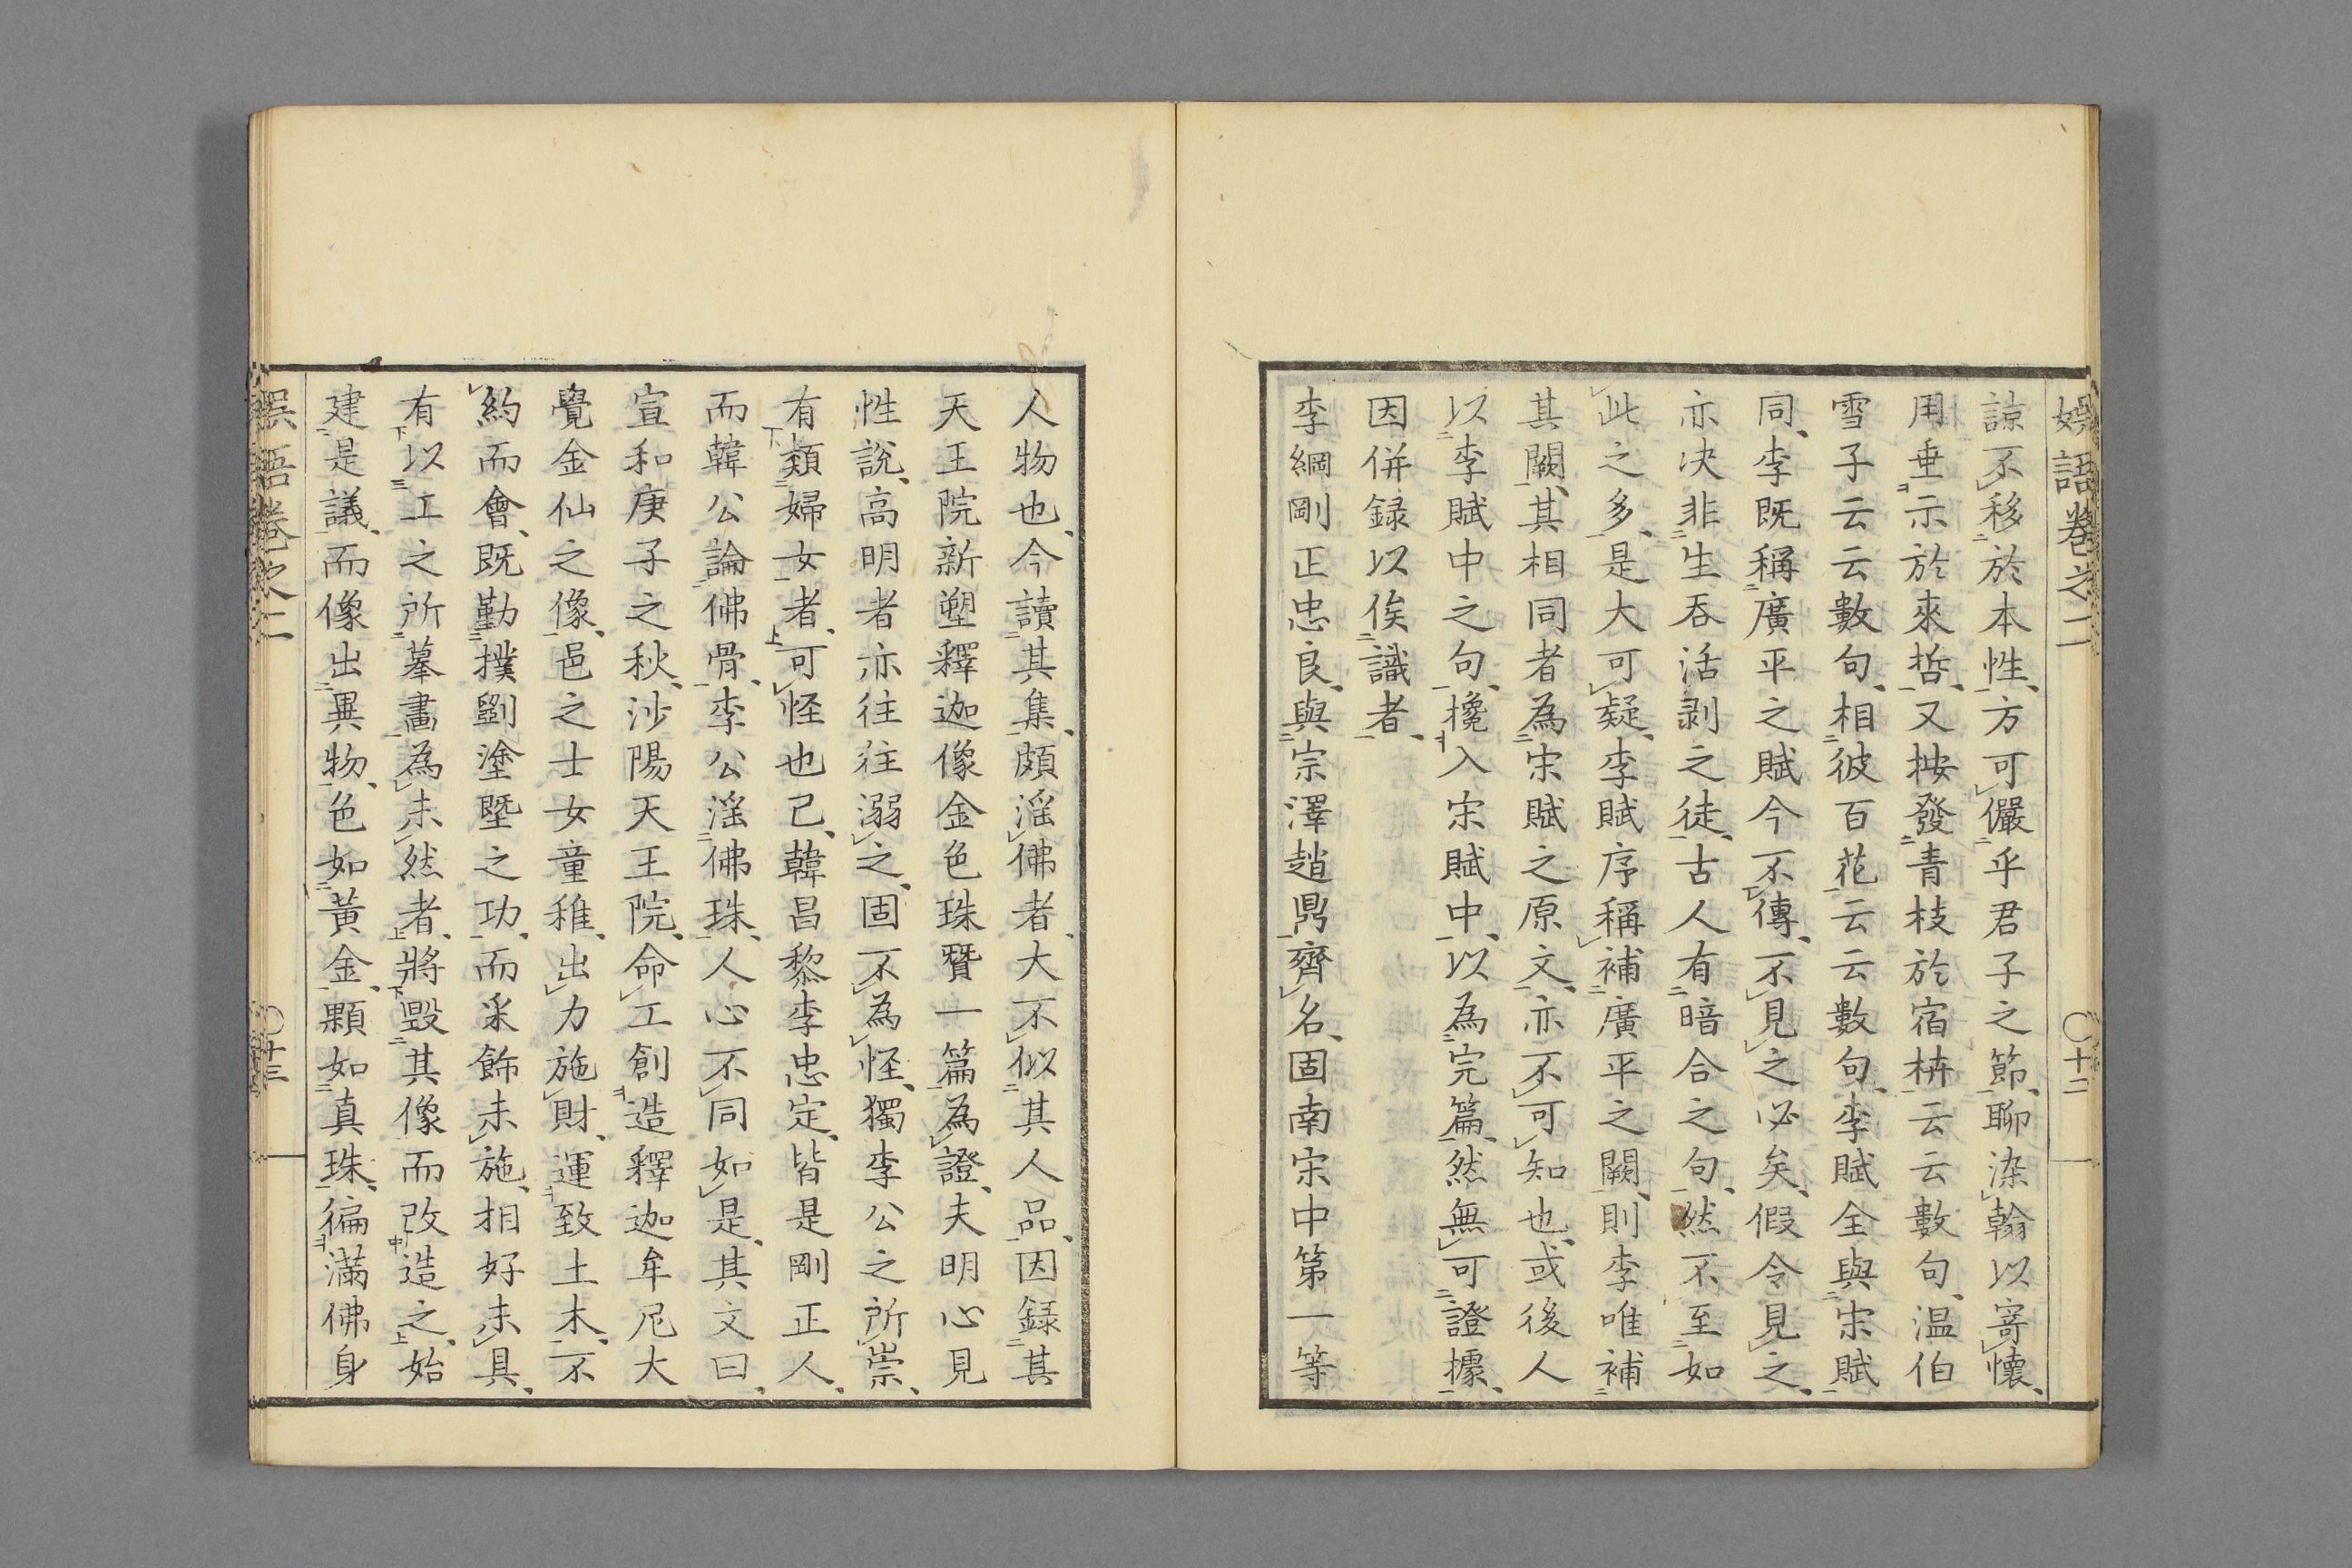 娯語卷之二 〇十二
諒不移於本性、方可儼乎君子之節、聊染翰以寄懷、
用垂示於來哲、又按發青枝於宿枿云云數句、温伯
雪子云云數句、相彼百花云云數句、李賦全與宋賦
同、李既稱廣平之賦今不傳、不見之必矣、假令見之、
亦决非生吞活剥之徒、古人有暗合之句、然不至如
此之多、是大可疑、李賦序稱補廣平之闕、則李唯補
其闕、其相同者為宋賦之原文、亦不可知也、或後人
以李賦中之句、攙入宋賦中、以為完篇、然無可證據、
因併録以俟識者、
李綱剛正忠良、與宗澤趙鼎齊名、固南宋中第一等
人物也、今讀其集、頗淫佛者、大不似其人品、因録其
天王院新塑釋迦像金色珠贊一篇為證、夫明心見
性說、高明者亦往往溺之、固不為怪、獨李公之所崇、
有類婦女者、可怪也已、韓昌黎李忠定、皆是剛正人、
而韓公論佛骨、李公淫佛珠、人心不同如是、其文曰、
宣和庚子之秋、沙陽天王院、命工創造釋迦牟尼大
覺金仙之像、邑之士女童稚、出力施財、運致土木、不
約而會、既勤撲劉塗塈之功、而采飾未施、相好未具、
有以工之所摹畫為未然者、將毀其像而改造之、始
建是議、而像出異物、色如黃金、顆如真珠、徧滿佛身
娯語卷之二 〇十三